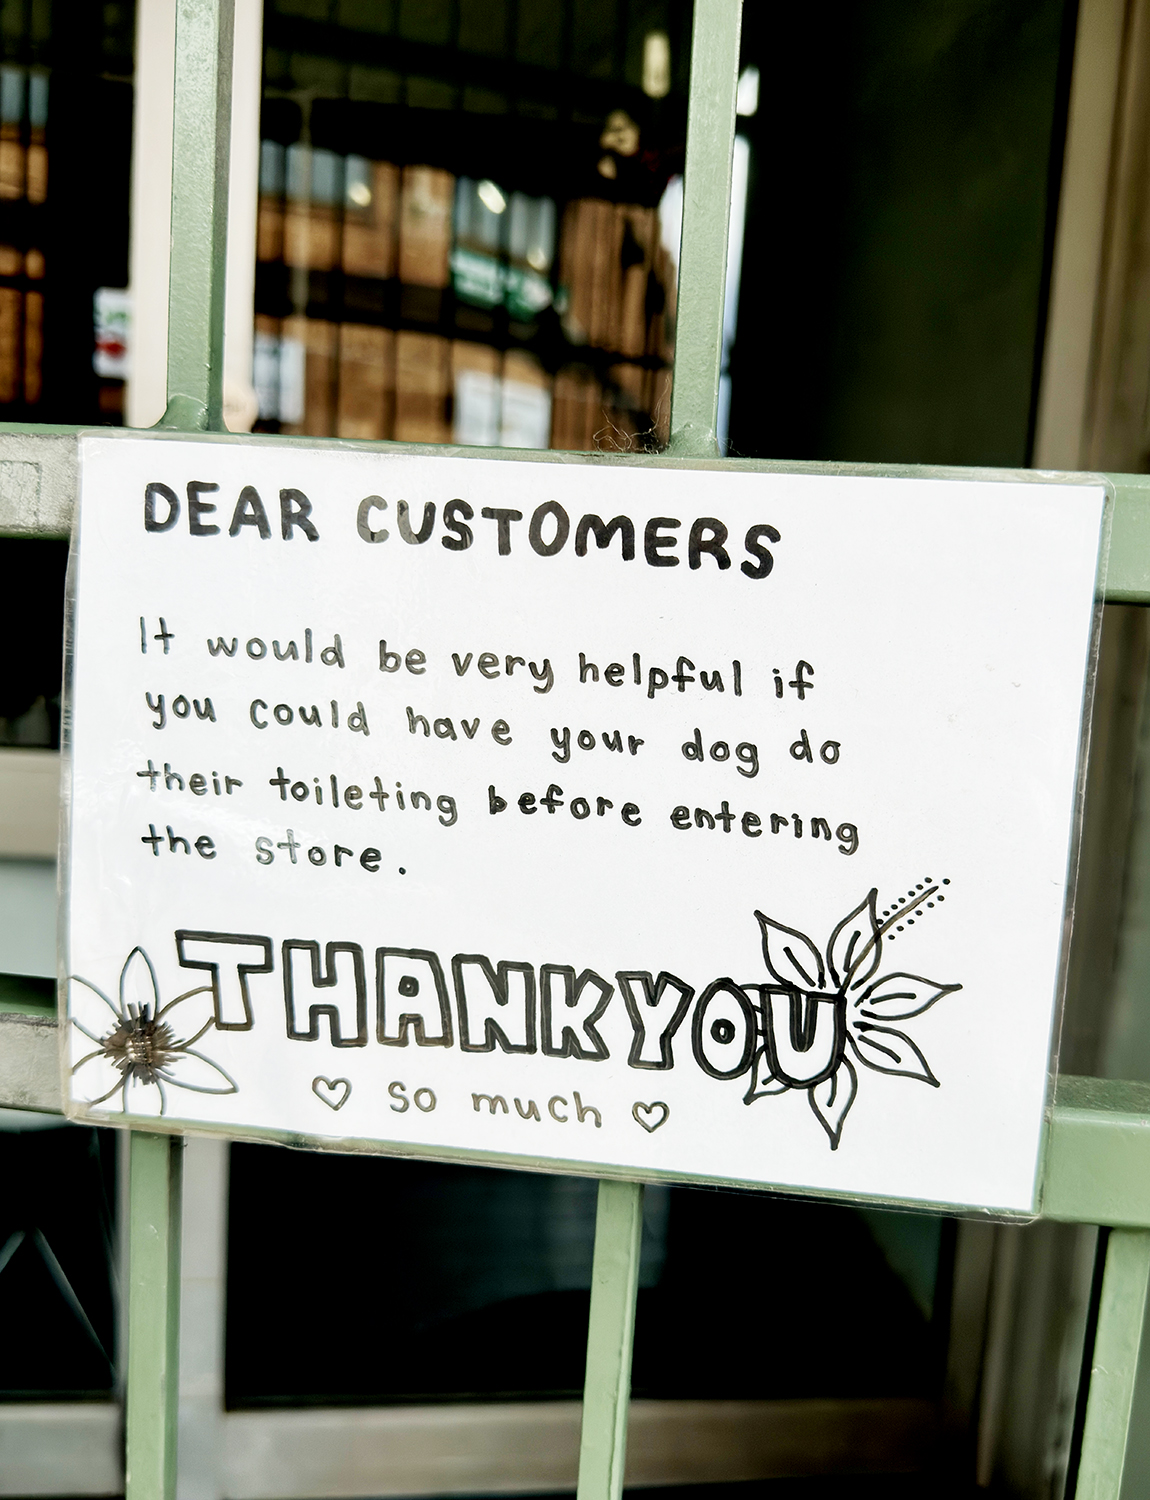 DEAR CUSTOMERS
It would be very helpful if
you could have your dog do
their toileting before entering
the store.
THANKYOU
♡ so much ♡